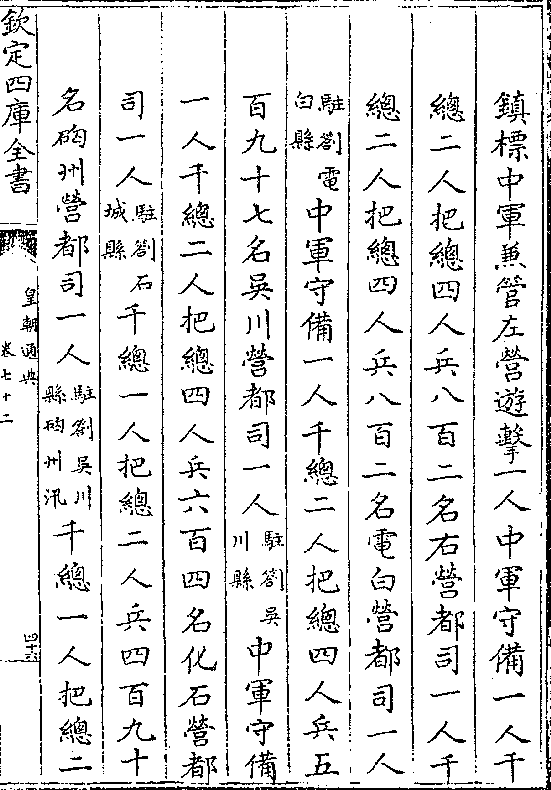 鎮標中軍兼管左營遊擊一人中軍守備一人千
總二人把總四人兵八百二名右營都司一人千
總二人把總四人兵八百二名電白營都司一人
駐劄電白縣中軍守備一人千總二人把總四人兵五
百九十七名吳川營都司一人駐劄吳川縣中軍守備
一人千總二人把總四人兵六百四名化石營都
司一人駐劄石城縣千總一人把總二人兵四百九十
名硇州營都司一人駐劄吳川縣硇州汛千總一人把總二
欽定四庫全書
皇朝通典
卷七十二
四十六